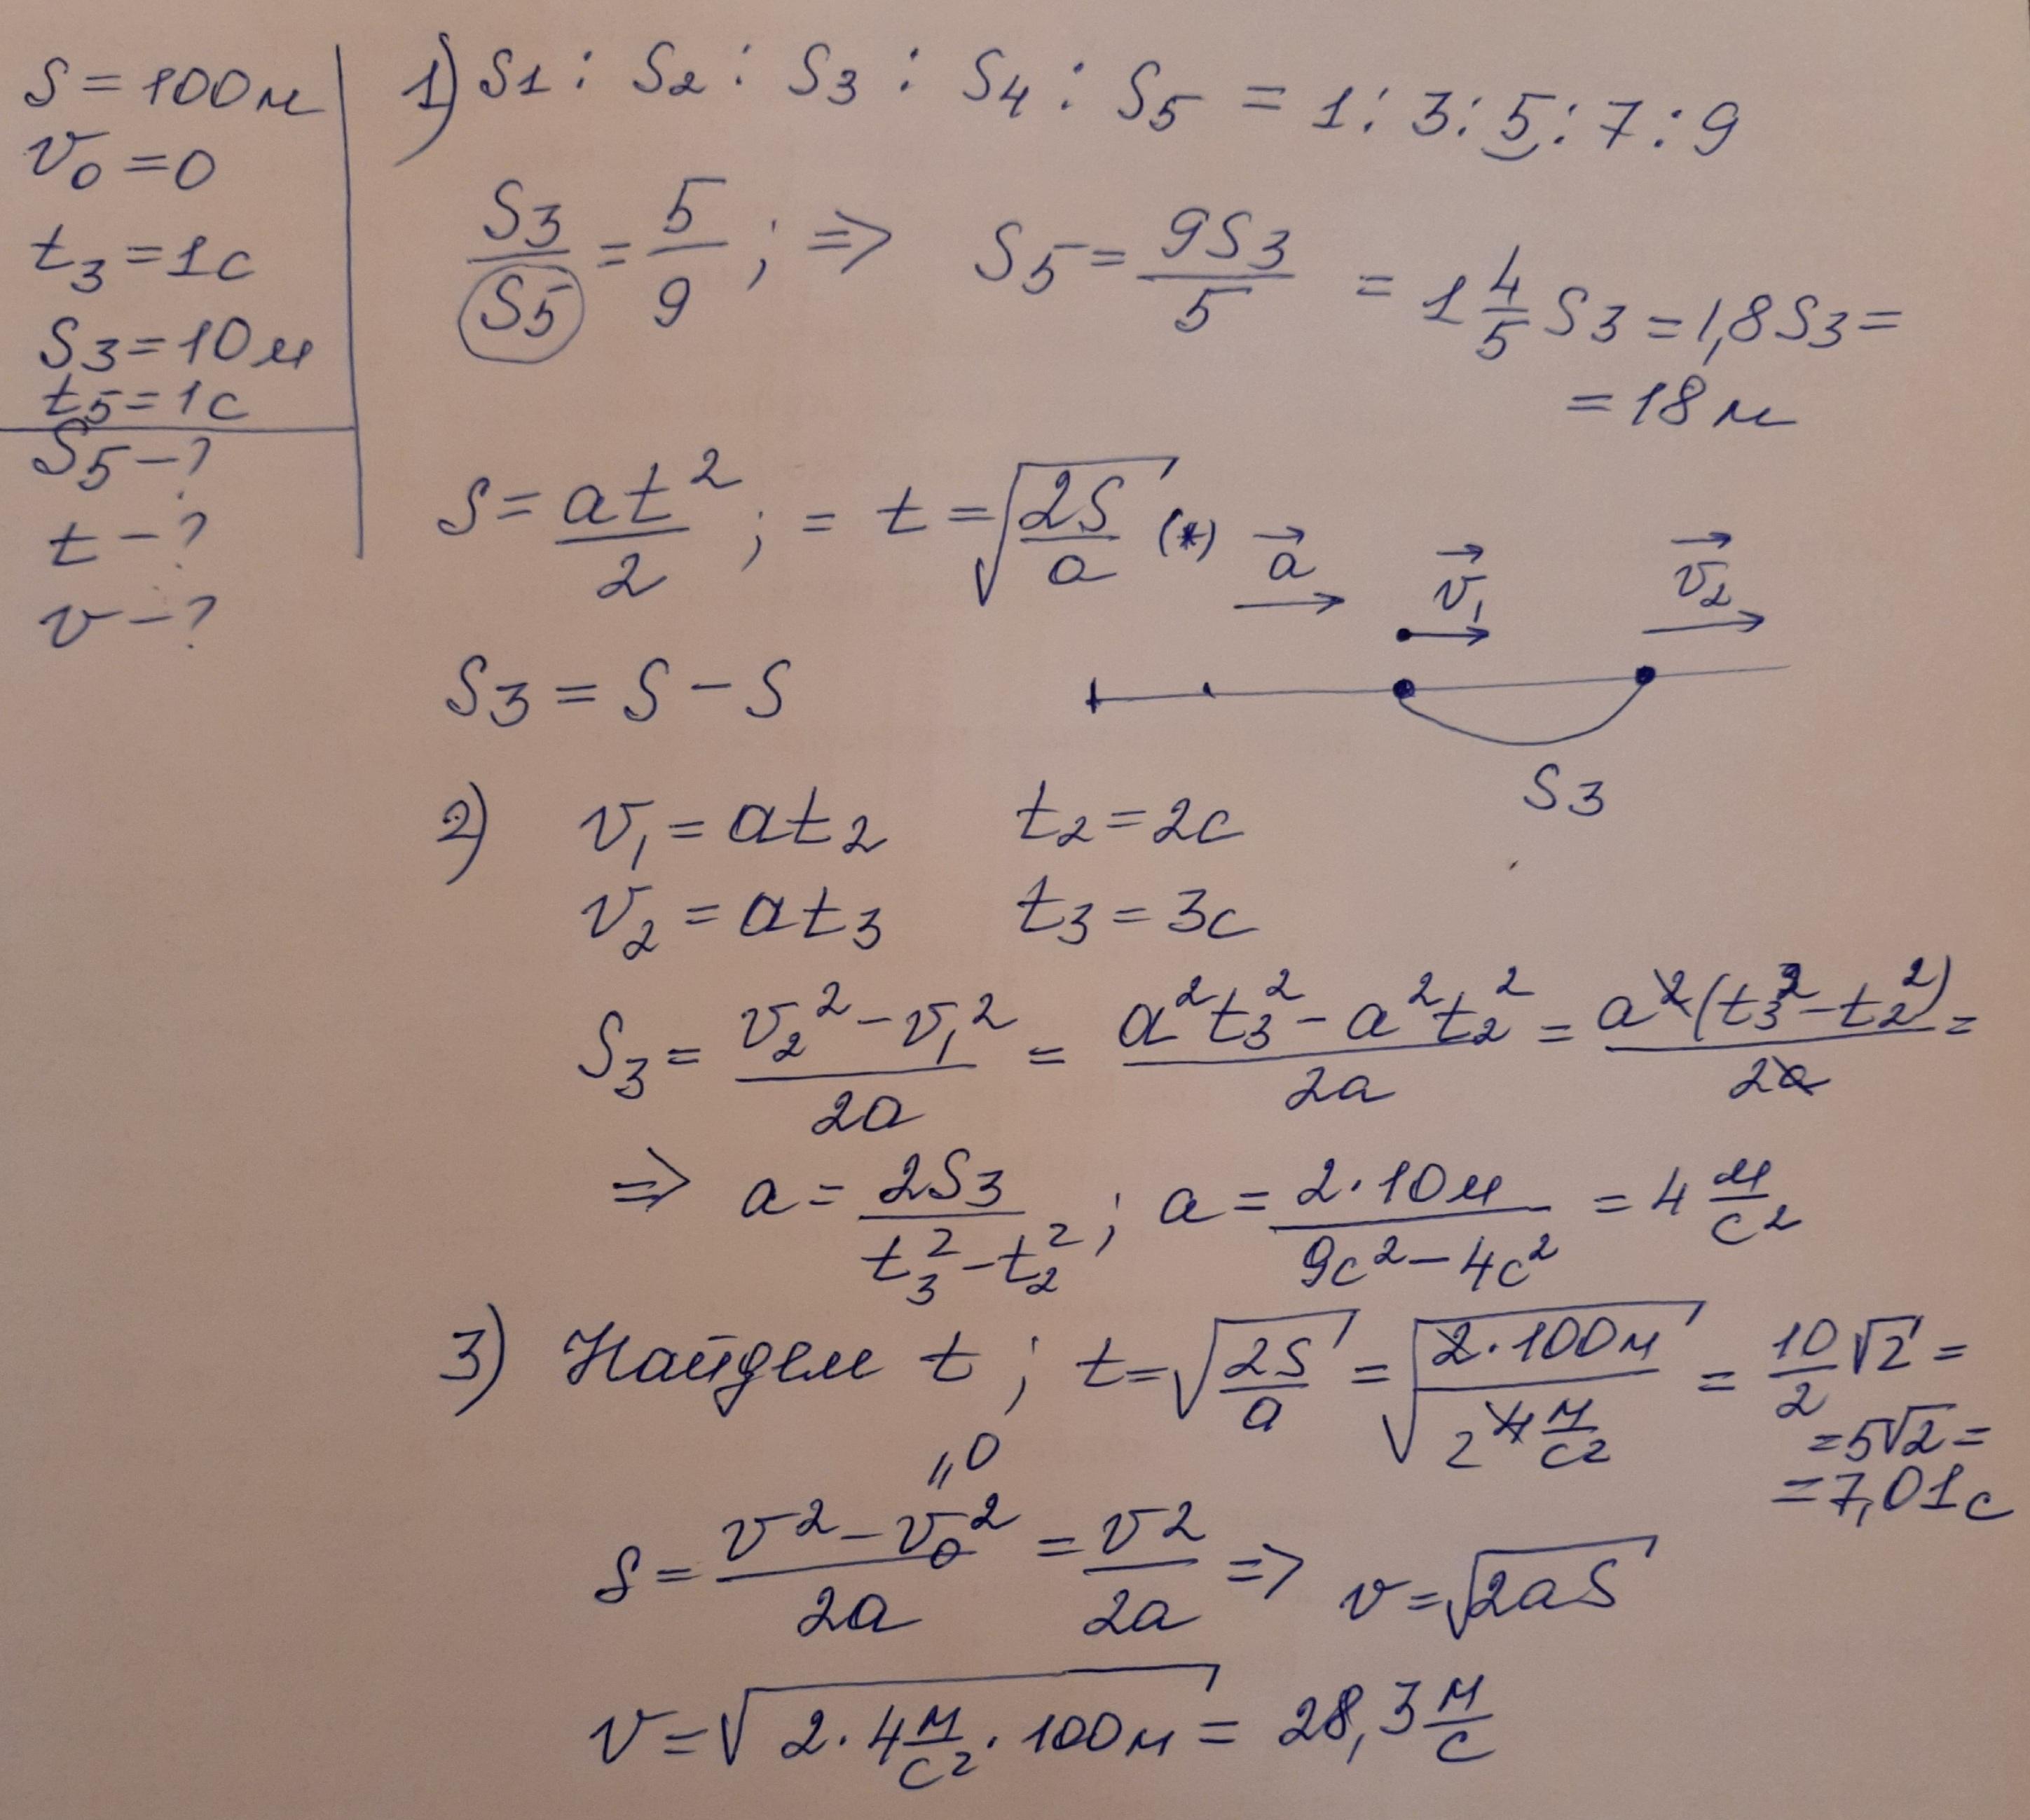 S = 100м
v₀ = 0
t₃ = 1с
S₃ = 10м
t₅ = 1с
S₅ – ?
t – ?
v – ?
1) S1 : S₂ : S₃ : S₄ : S₅ = 1 : 3 : 5 : 7 : 9
S₃/S₅ = 5/9 ; ⇒ S₅ = 9S₃/5 = 1 4/5 S₃ = 1,8S₃ =
= 18м
S = at²/2 ; = t = √(2S/a) (*)
a⃗ v⃗₁ v⃗₂
S₃ = S – S
S₃
2) v₁ = at₂ t₂ = 2с
v₂ = at₃ t₃ = 3с
S₃ = (v₂² – v₁²)/2a = (a²t₃² – a²t₂²)/2a = a²(t₃² – t₂²)/2a =
⇒ a = 2S₃/(t₃² – t₂²) ; a = 2·10м/(9с² – 4с²) = 4 м/с²
3) Найдем t ; t = √(2S/a) = √(2·100м/2 4 м/с²) = 10/2 √2 =
= 5√2 =
= 7,01с
"0
S = (v² – v₀²)/2a = v²/2a ⇒ v = √(2aS)
v = √(2·4 м/с²·100м) = 28,3 м/с